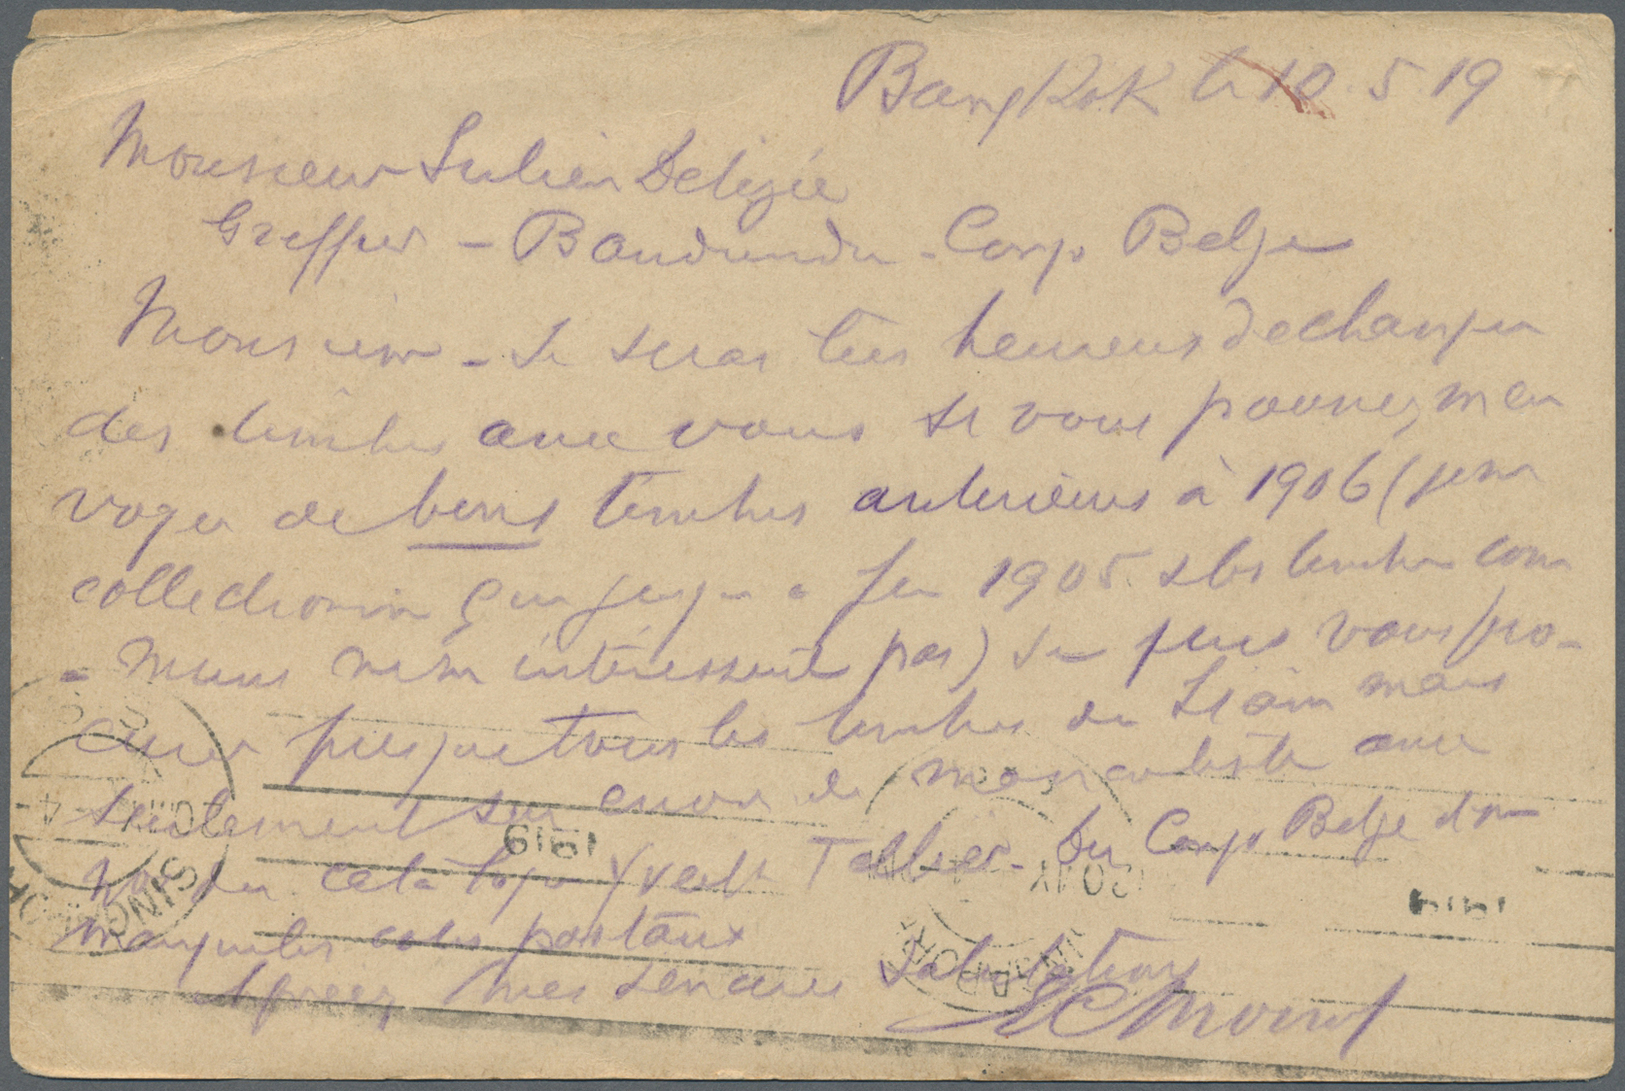 Bangkok le 10.5.19
Monsieur Julien Delizée
Greffier - Bandundu - Congo Belge
Monsieur - Je serai très heureux dechanger
des timbres avec vous si vous pouvez m'en
voyer de bons timbres anterieurs à 1906 (je ne
collectionne que jusqu'a fin 1905. & les timbres com
- muns ne m'intéressent pas) Je puis vous pro-
curer presque tous les timbres de Siam mais
seulement sur envoi de mancoliste avec
No du catalogue Yvert Tellier. Du Congo Belge il me
manque les colis postaux
Agreez mes sincères salutations
1919
1919
SINGAPORE